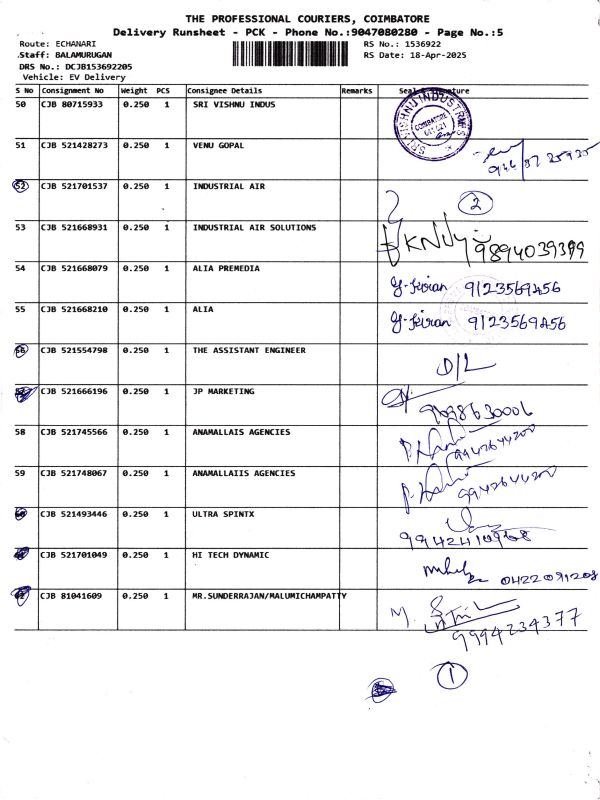 THE PROFESSIONAL COURIERS, COIMBATORE
Delivery Runsheet - PCK - Phone No.:9047080280 - Page No.:5
Route: ECHANARI RS No.: 1536922
Staff: BALAMURUGAN RS Date: 18-Apr-2025
DRS No.: DCJB153692205
Vehicle: EV Delivery
S No Consignment No Weight PCS Consignee Details Remarks Seal & Signature
50 CJB 80715933 0.250 1 SRI VISHNU INDUS
SRI VISHNU INDUSTRIES COIMBATORE
51 CJB 521428273 0.250 1 VENU GOPAL
52 CJB 521701537 0.250 1 INDUSTRIAL AIR 2
53 CJB 521668931 0.250 1 INDUSTRIAL AIR SOLUTIONS
9894039399
54 CJB 521668079 0.250 1 ALIA PREMEDIA
Y. Kiran 9123569456
55 CJB 521668210 0.250 1 ALIA
Y. Kiran 9123569456
56 CJB 521554798 0.250 1 THE ASSISTANT ENGINEER
D/L
57 CJB 521666196 0.250 1 JP MARKETING
9698630006
58 CJB 521745566 0.250 1 ANAMALLAIS AGENCIES
9942644200
59 CJB 521748067 0.250 1 ANAMALLAIIS AGENCIES
9942644200
60 CJB 521493446 0.250 1 ULTRA SPINTX
9942410968
61 CJB 521701049 0.250 1 HI TECH DYNAMIC
04222091208
62 CJB 81041609 0.250 1 MR.SUNDERRAJAN/MALUMICHAMPATTY
9994234377
1